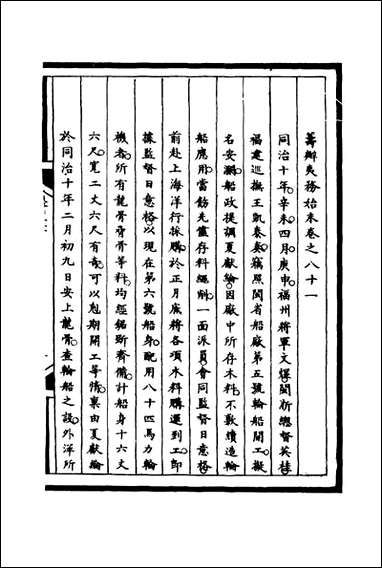 籌辦夷務始末卷之八十一
同治十年辛未四月庚申福州將軍文煜閩浙總督英桂
福建巡撫王凱泰奏竊照閩省船廠第五號輪船開工擬
名安瀾船政提調夏獻綸因廠中所存木料不敷續造輪
船應用當飭先儘存料繩削一面派員會同監督日意格
前赴上海洋行採購於正月底將各項木料購運到工即
據監督日意格以現在第六號船身配用八十匹馬力輪
機者所有龍骨脅骨等料均經鋸斲齊備計船身十六丈
六尺寬二丈六尺有奇可以剋期開工等情稟由夏獻綸
於同治十年二月初九日安上龍骨查輪船之設外洋所